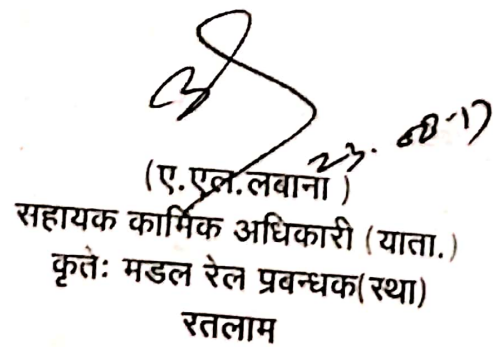 23.08-17
(ए.एल.लबाना )
सहायक कार्मिक अधिकारी (याता.)
कृतेः मडल रेल प्रबन्धक(स्था)
रतलाम